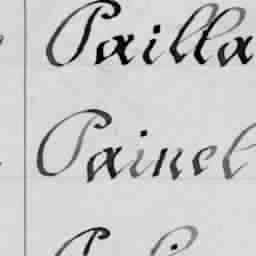 Pailla
Painel